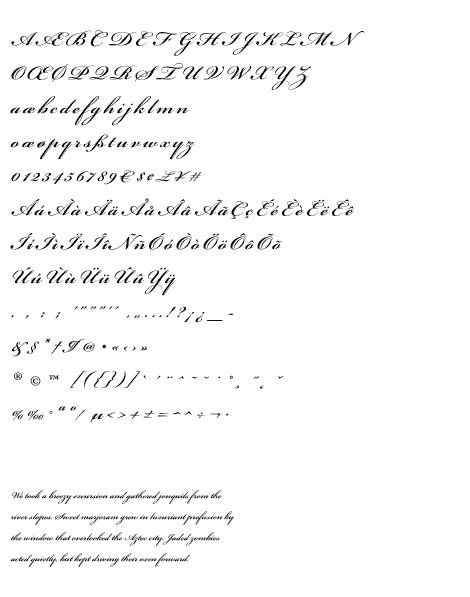 A Æ B C D E F G H I J K L M N
O Œ Ø P Q R S T U V W X Y Z
a æ b c d e f g h i j k l m n
o œ ø p q r s ß t u v w x y z
0 1 2 3 4 5 6 7 8 9 € $ ¢ £ ¥ #
Á á À à Ä ä Å å Â â Ã ã Ç ç É é È è Ë ë Ê ê
Í í Ì ì Ï ï Î î Ñ ñ Ó ó Ò ò Ö ö Ô ô Õ õ
Ú ú Ù ù Ü ü Û û Ÿ ÿ
. , : ; ' " “ ” ‘ ’ ‚ „ … ! ? ¡ ¿ _ -
& § * † ¶ @ • « ‹ › »
® © ™ [ ( { } ) ] ` ´ ¨ ¯ ^ ~ ˘ ˙ ° ¸ ˝ ˛ ˇ
% ‰ ° ª º / µ < > + ± = ~ ^ ÷ ¬ ·
We took a breezy excursion and gathered jonquils from the
river slopes. Sweet marjoram grew in luxuriant profusion by
the window that overlooked the Aztec city. Jaded zombies
acted quietly, but kept driving their oxen forward.